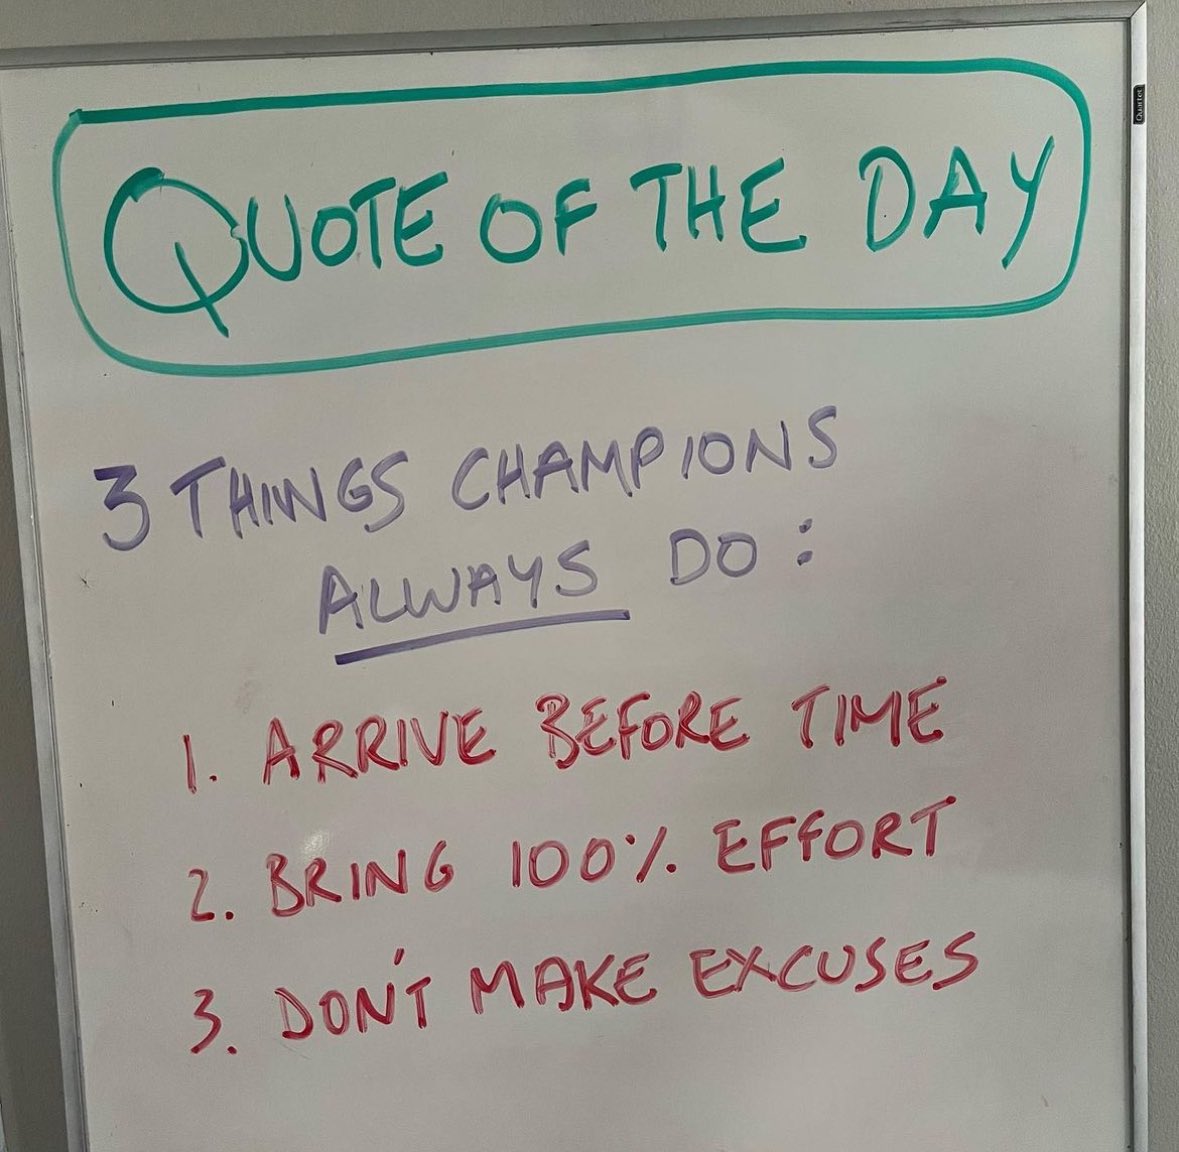 QUOTE OF THE DAY
3 THINGS CHAMPIONS
ALWAYS DO:
1. ARRIVE BEFORE TIME
2. BRING 100% EFFORT
3. DON'T MAKE EXCUSES
Quartet